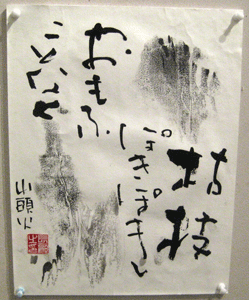 枯枝
ぽきぽき
おもふ
ことなく
山頭火